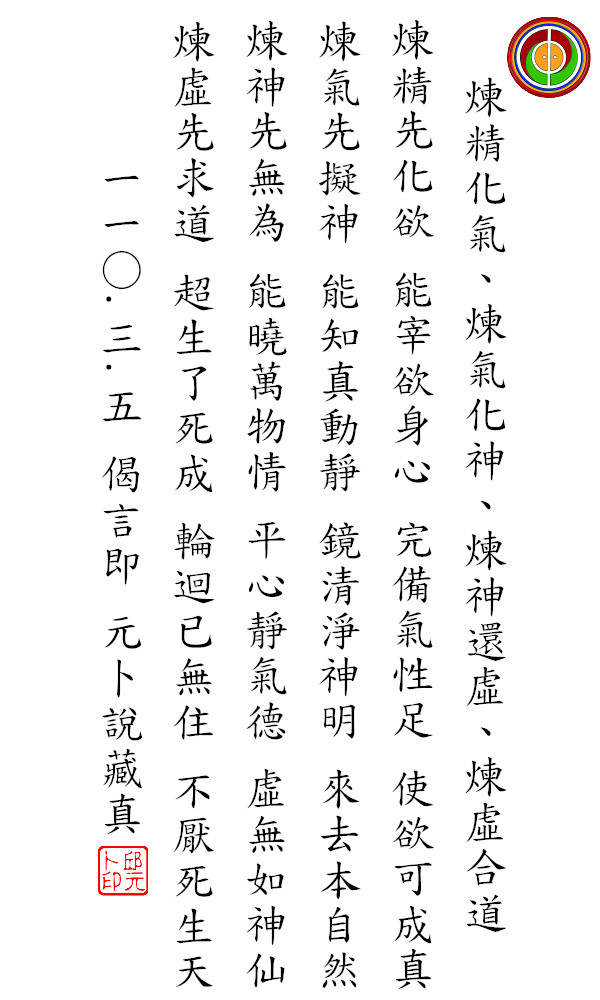 煉精化氣、煉氣化神、煉神還虛、煉虛合道
煉精先化欲 能宰欲身心 完備氣性足 使欲可成真
煉氣先擬神 能知真動靜 鏡清淨神明 來去本自然
煉神先無為 能曉萬物情 平心靜氣德 虛無如神仙
煉虛先求道 超生了死成 輪迴已無住 不厭死生天
一一〇.三.五 偈言即 元卜說藏真
邱元卜印